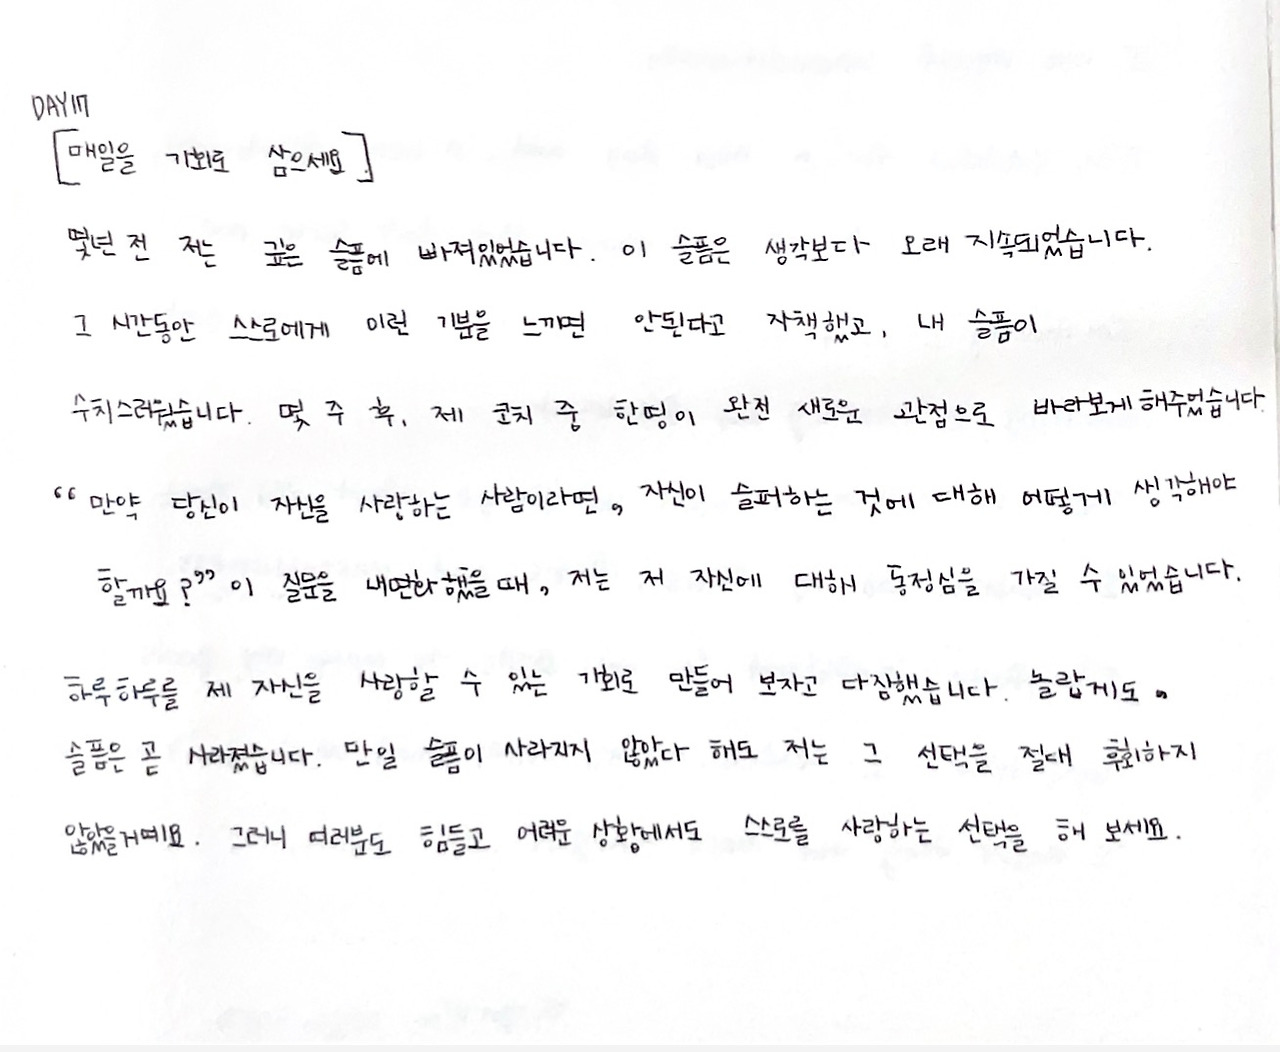 DAY17
[매일을 기회로 삼으세요]
몇년 전 저는 깊은 슬픔에 빠져있었습니다. 이 슬픔은 생각보다 오래 지속되었습니다.
그 시간동안 스스로에게 이런 기분을 느끼면 안된다고 자책했고, 내 슬픔이
수치스러웠습니다. 몇 주 후, 제 코치 중 한명이 완전 새로운 관점으로 바라보게 해주었습니다.
“만약 당신이 자신을 사랑하는 사람이라면, 자신이 슬퍼하는 것에 대해 어떻게 생각해야
할까요?” 이 질문을 내면화 했을 때, 저는 저 자신에 대해 동정심을 가질 수 있었습니다.
하루하루를 제 자신을 사랑할 수 있는 기회로 만들어 보자고 다짐했습니다. 놀랍게도,
슬픔은 곧 사라졌습니다. 만일 슬픔이 사라지지 않았다 해도 저는 그 선택을 절대 후회하지
않았을거예요. 그러니 여러분도 힘들고 어려운 상황에서도 스스로를 사랑하는 선택을 해 보세요.